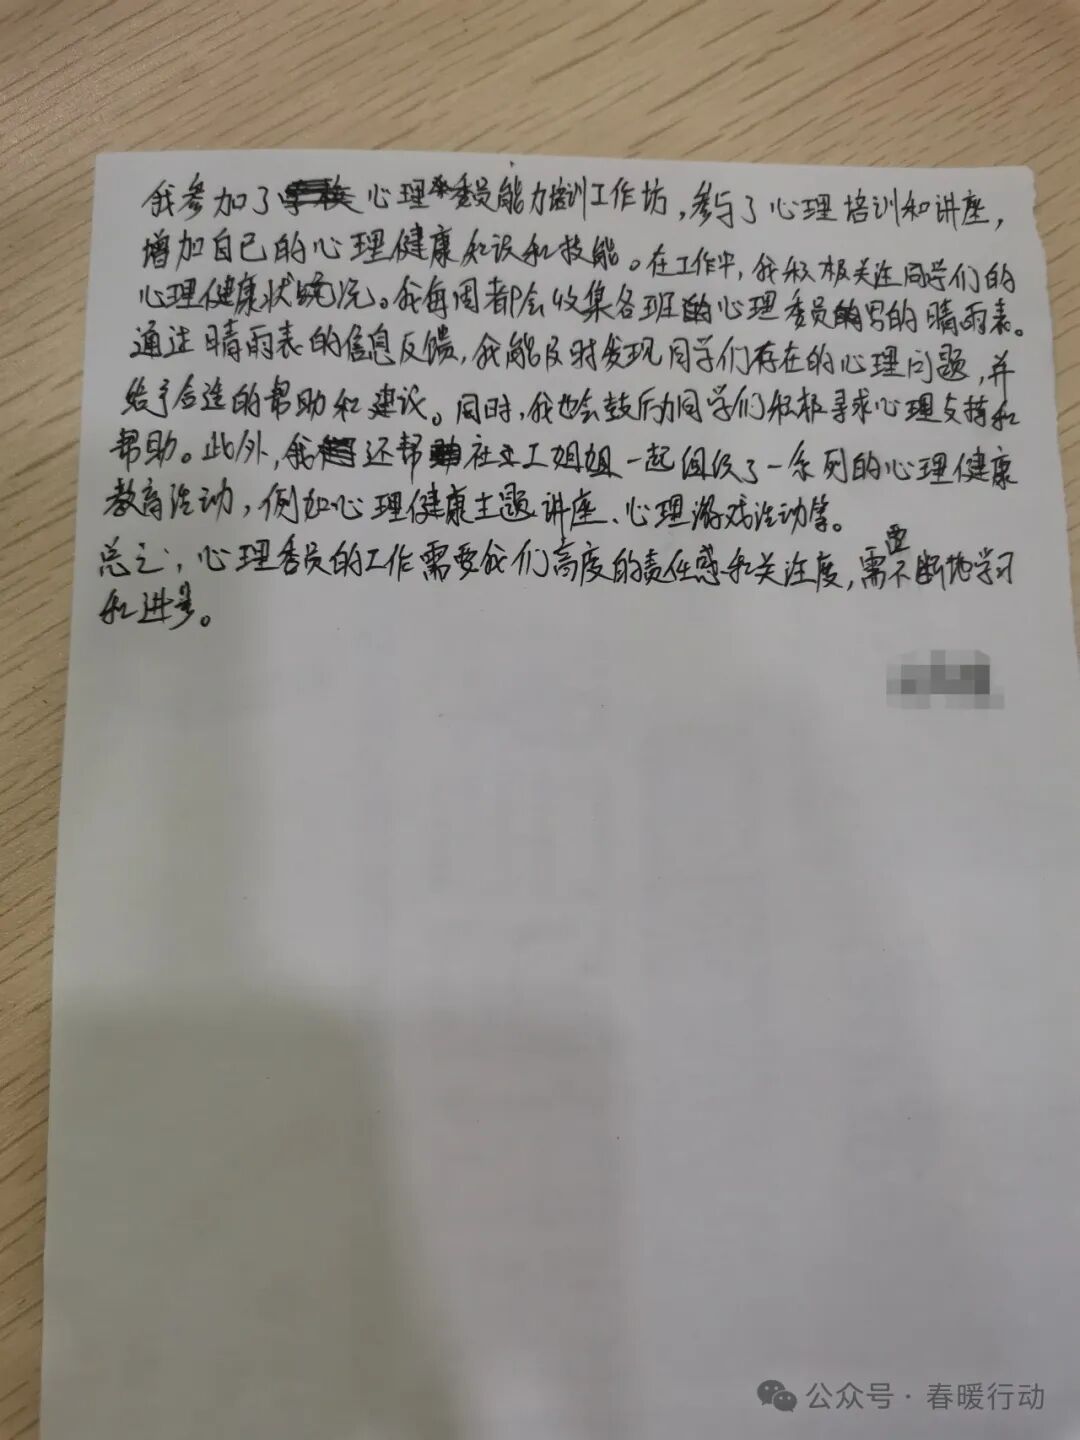 我参加了心理委员能力培训工作坊，参与了心理培训和讲座，
增加自己的心理健康知识和技能。在工作中，我积极关注同学们的
心理健康状况。我每周都会收集各班的心理委员写的晴雨表。
通过晴雨表的信息反馈，我能及时发现同学们存在的心理问题，并
给予合适的帮助和建议。同时，我也会鼓励同学们积极寻求心理支持和
帮助。此外，我还帮助社工姐姐一起组织了一系列的心理健康
教育活动，例如心理健康主题讲座、心理游戏活动等。
总之，心理委员的工作需要我们高度的责任感和关注度，需要不断地学习
和进步。
公众号·春暖行动